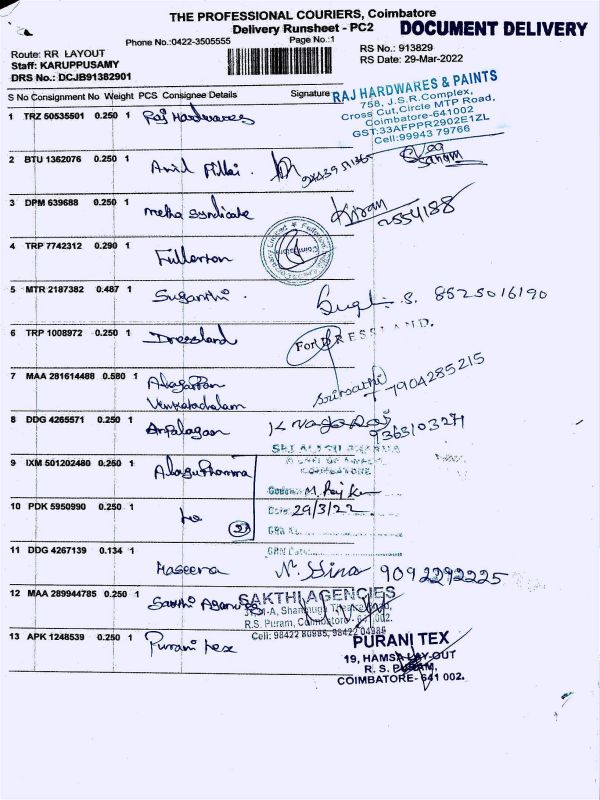 THE PROFESSIONAL COURIERS, Coimbatore
Delivery Runsheet - PC2
DOCUMENT DELIVERY
Phone No:0422-3505555 Page No.:1
Route: RR LAYOUT
Staff: KARUPPUSAMY
DRS No.: DCJB91382901
RS No.: 913829
RS Date: 29-Mar-2022
S No Consignment No Weight PCS Consignee Details Signature
RAJ HARDWARES & PAINTS
758, J.S.R.Complex,
Cross Cut,Circle MTP Road,
Coimbatore-641002
GST:33AFPPR2902E1ZL
Cell:99943 79766
1 TRZ 50535501 0.250 1 Raj Hardwares
2 BTU 1362076 0.250 1 Anil Pillai.
3 DPM 639688 0.250 1 metha Syndicate Kiran 2554188
4 TRP 7742312 0.290 1 Fullerton
5 MTR 2187382 0.487 1 Suganthi. S. 8525016190
6 TRP 1008972 0.250 1 Dressland For DRESSLAND.
7 MAA 281614488 0.580 1 Alagappan
Venkatachalam
7904285215
8 DDG 4265571 0.250 1 K Nagaraj
9363103271
9 IXM 501202480 0.250 1
COIMBATORE
M. Raj K
10 PDK 5950990 0.250 1 Date: 29/3/22
11 DDG 4267139 0.134 1 Haseena 9092292225
12 MAA 289944785 0.250 1 Sakthi Agencies
SAKTHI AGENCIES
R.S. Puram, Coimbatore - 641 002.
Cell: 98422 80985, 98422 04985
13 APK 1248539 0.250 1 Purani tex
PURANI TEX
19, HAMSA LAY-OUT
R. S. PURAM,
COIMBATORE- 641 002.